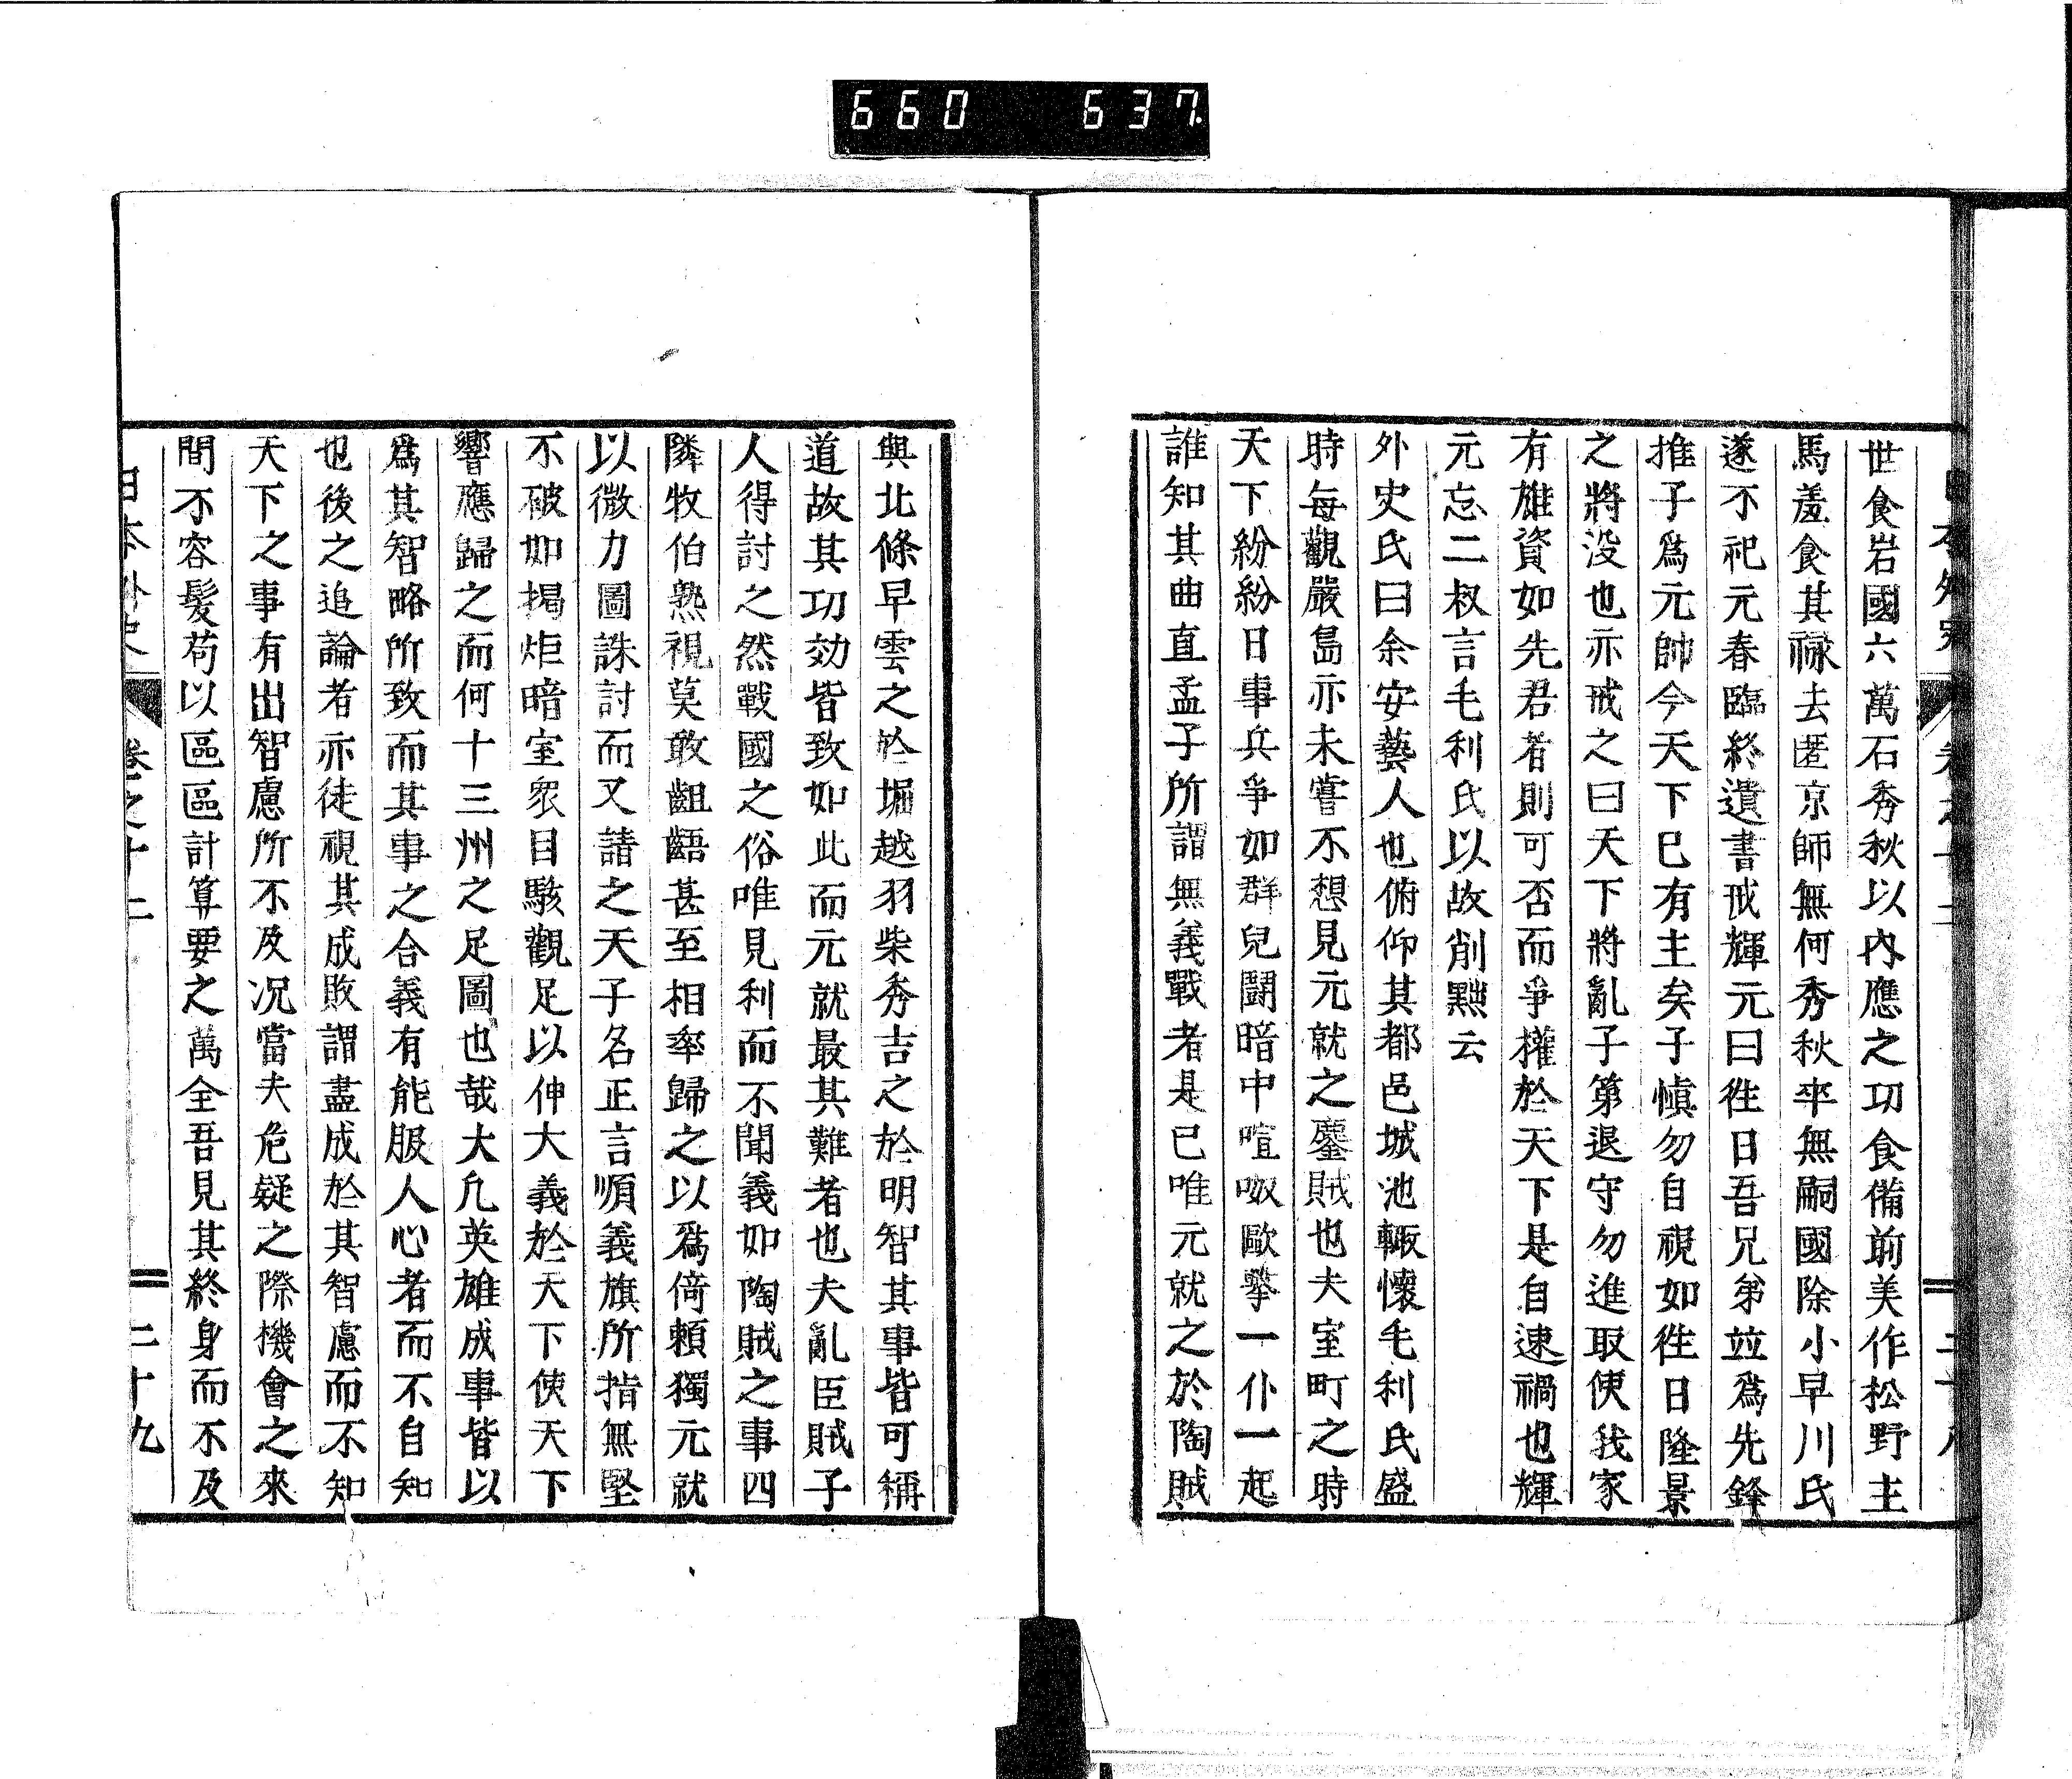 660 637.
世食岩國六萬石秀秋以內應之功食備前美作松野主
馬羞食其祿去匿京師無何秀秋卒無嗣國除小早川氏
遂不祀元春臨終遺書戒輝元曰往日吾兄弟竝爲先鋒
推子爲元帥今天下已有主矣子愼勿自視如往日隆景
之將没也亦戒之曰天下將亂子第退守勿進取使我家
有雄資如先君者則可否而爭權於天下是自速禍也輝
元忘二叔言毛利氏以故削黜云
外史氏曰余安藝人也俯仰其都邑城池輙懷毛利氏盛
時每觀嚴島亦未嘗不想見元就之鏖賊也夫室町之時
天下紛紛日事兵爭如群兒鬪暗中喧呶歐擊一仆一起
誰知其曲直孟子所謂無義戰者是已唯元就之於陶賊
與北條早雲之於堀越羽柴秀吉之於明智其事皆可稱
道故其功効皆致如此而元就最其難者也夫亂臣賊子
人得討之然戰國之俗唯見利而不聞義如陶賊之事四
隣牧伯熟視莫敢齟齬甚至相率歸之以爲倚賴獨元就
以微力圖誅討而又請之天子名正言順義旗所指無堅
不破如揭炬暗室衆目駭觀足以伸大義於天下使天下
響應歸之而何十三州之足圖也哉大凡英雄成事皆以
爲其智略所致而其事之合義有能服人心者而不自知
也後之追論者亦徒視其成敗謂盡成於其智慮而不知
天下之事有出智慮所不及况當夫危疑之際機會之來
間不容髮苟以區區計算要之萬全吾見其終身而不及
日本外史 卷之十二 二十九